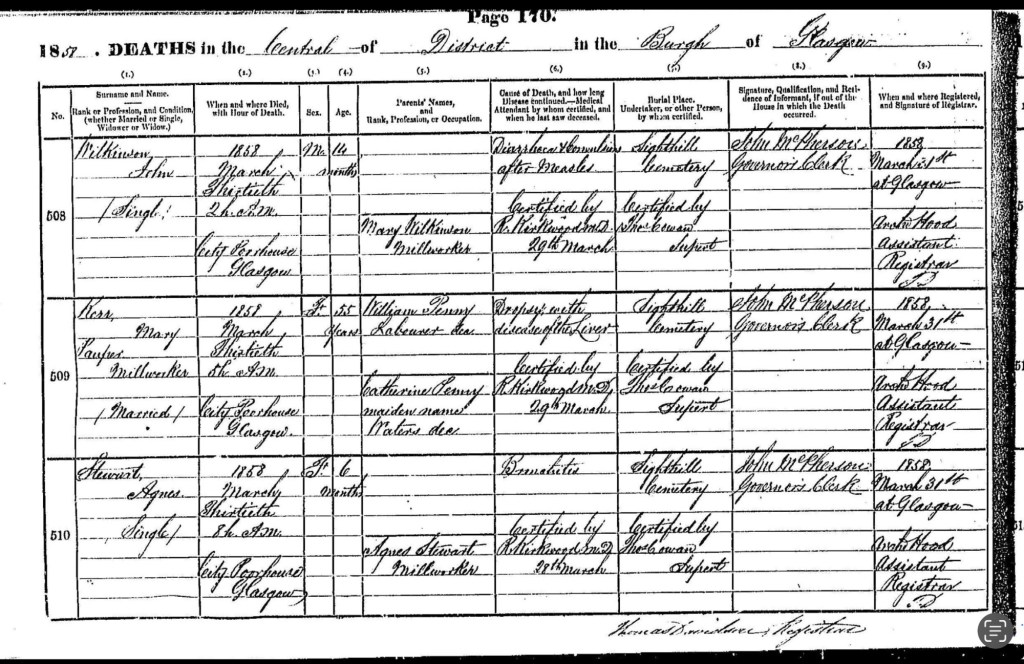 Page 170.
1858. DEATHS in the Central of District in the Burgh of Glasgow
(1.) (2.) (3.) (4.) (5.) (6.) (7.) (8.) (9.)
No.
Surname and Name.
Rank or Profession, and Condition,
(whether Married or Single,
Widower or Widow.)
When and where Died,
with Hour of Death.
Sex.
Age.
Parents' Names,
and
Rank, Profession, or Occupation.
Cause of Death, and how long
Disease continued.—Medical
Attendant by whom certified, and
when he last saw deceased.
Burial Place.
Undertaker, or other Person,
by whom certified.
Signature, Qualification, and Resi-
dence of Informant, if out of the
House in which the Death
occurred.
When and where Registered,
and Signature of Registrar.
508
Wilkinson
John
(Single)
1858
March
Thirtieth
2h. A.M.
City Poorhouse
Glasgow
M.
14
months
Mary Wilkinson
Millworker
Diarrhoea & Convulsions
after Measles
Certified by
R. Kirkwood M.D.
29th March
Sighthill
Cemetery
Certified by
Thos Cowan
Supert
John McPherson
Governor's Clerk
1858
March 31st
at Glasgow
Archd Hood
Assistant
Registrar
509
Kerr,
Mary
Pauper
Millworker
(Married)
1858
March
Thirtieth
5h. A.M.
City Poorhouse
Glasgow.
F.
55
years
William Penny
Labourer dec.
Catherine Penny
maiden name
Waters dec.
Dropsy with
disease of the Liver
Certified by
R. Kirkwood M.D.
29th March
Sighthill
Cemetery
Certified by
Thos Cowan
Supert
John McPherson
Governor's Clerk
1858,
March 31st
at Glasgow
Archd Hood
Assistant
Registrar
510
Stewart,
Agnes.
(Single)
1858
March
Thirtieth
8h. A.M.
City Poorhouse
Glasgow
F.
6
months
Agnes Stewart
Millworker
Bronchitis
Certified by
R. Kirkwood M.D.
28th March
Sighthill
Cemetery
Certified by
Thos Cowan
Supert
John McPherson
Governor's Clerk
1858,
March 31st
at Glasgow
Archd Hood
Assistant
Registrar
Thomas Davidson, Registrar